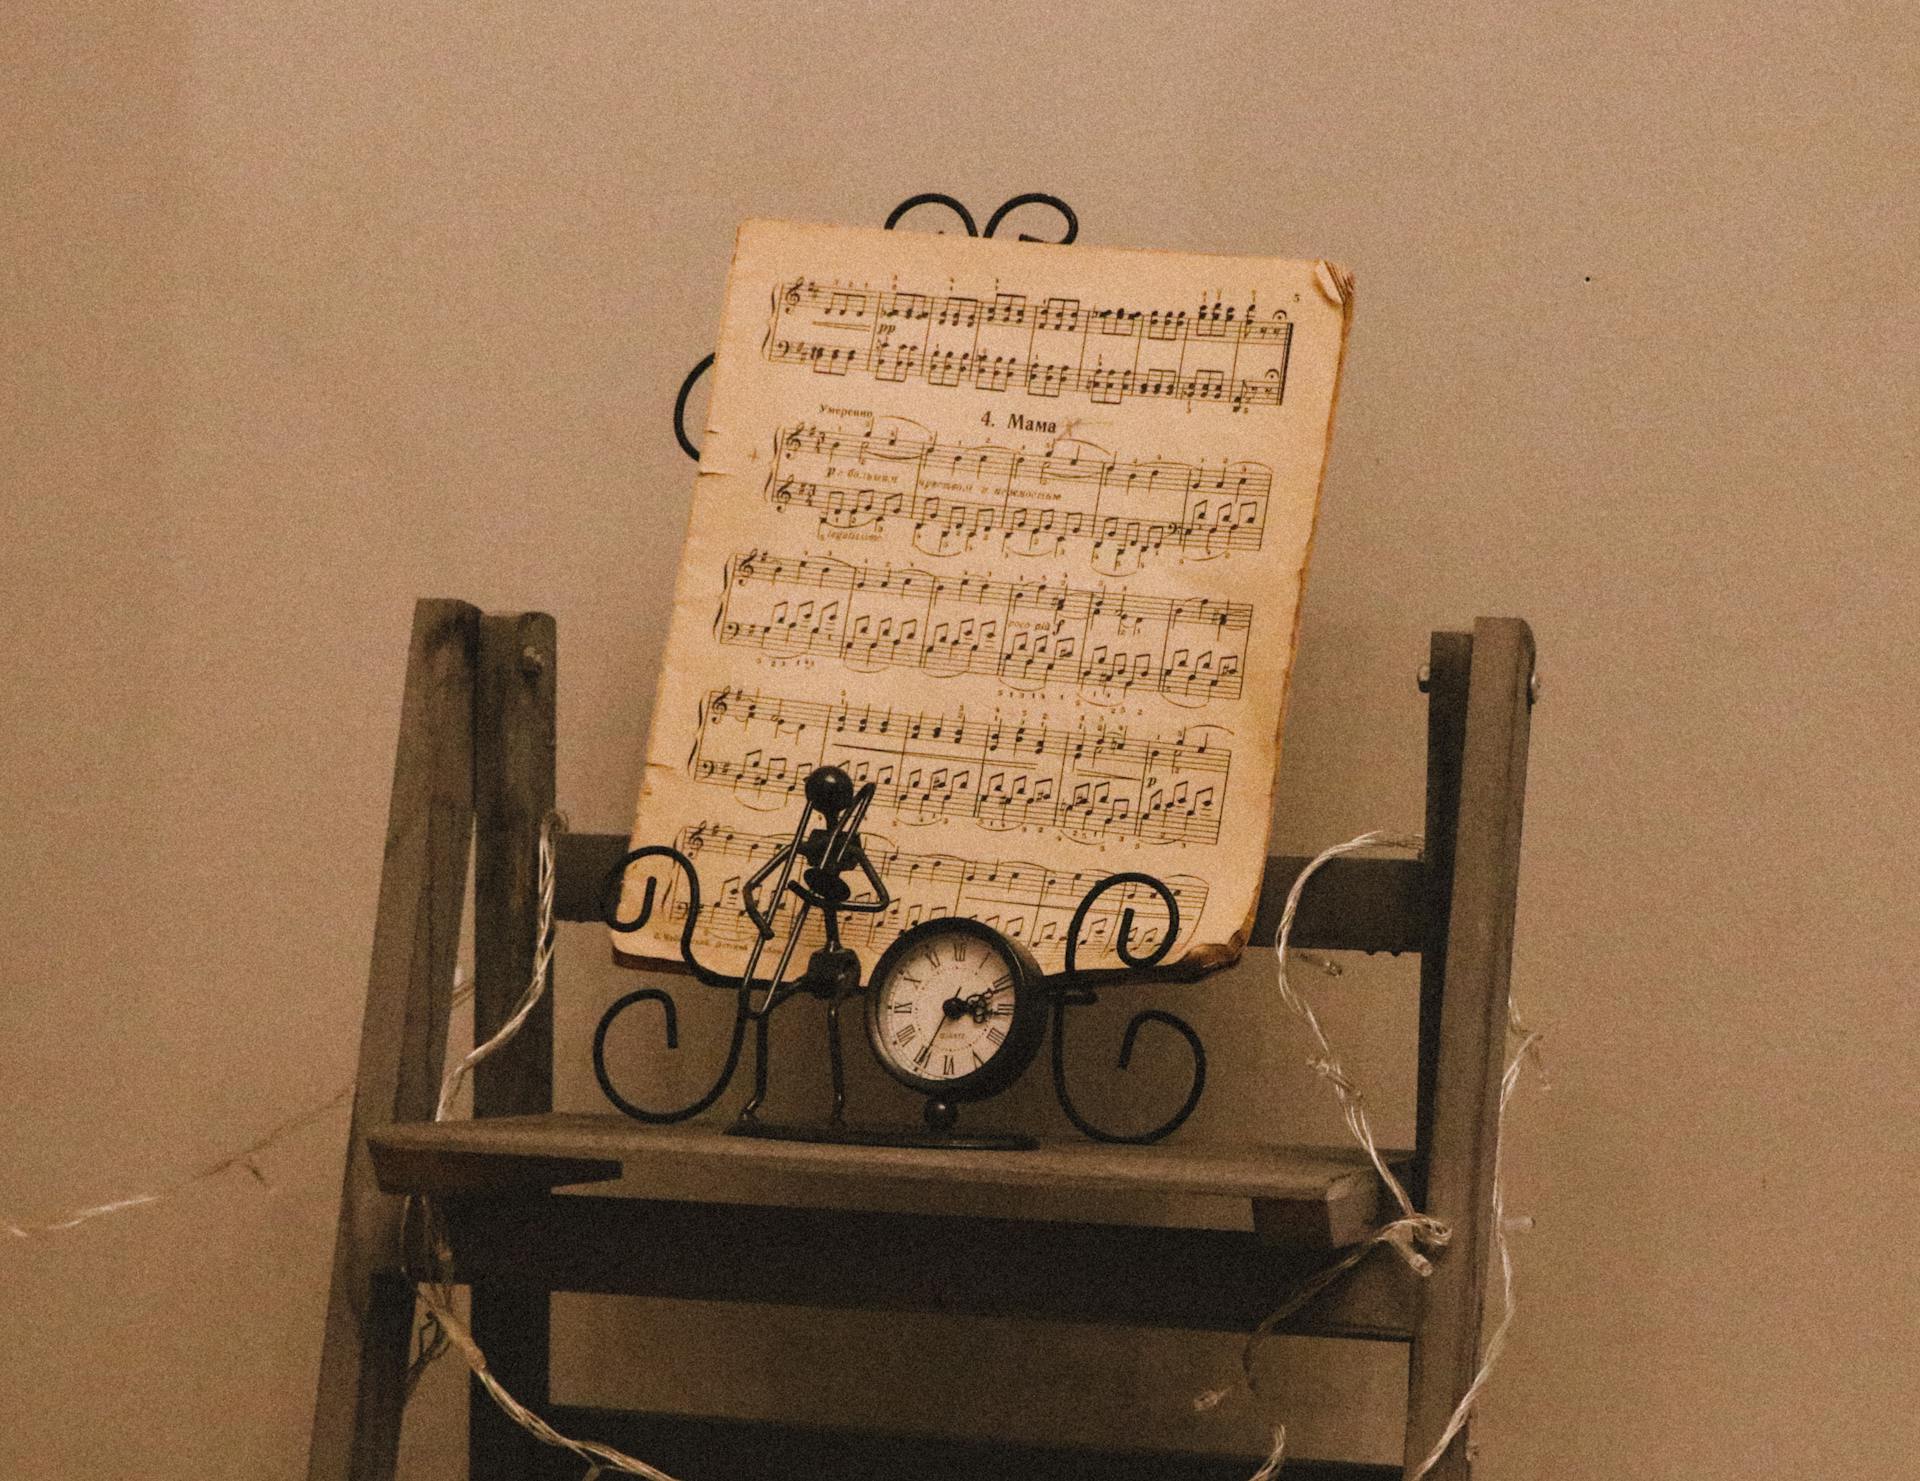 5
pp
4. Мама
Умеренно
p с большим чувством и нежностью
legatissimo
poco più f
p
QUARTZ